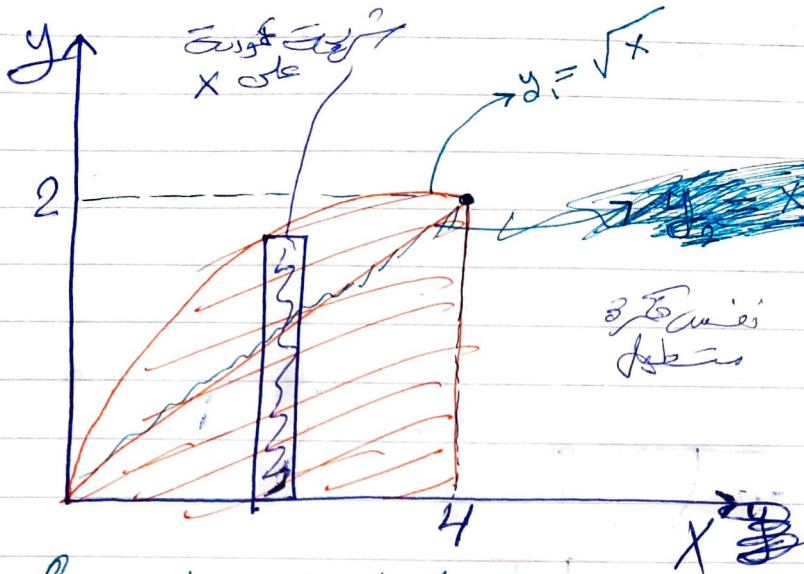 y
شريحة عمودية
على X
y₁ = √x
2
y₂
X
نفس فكرة
مستطيل
4
X